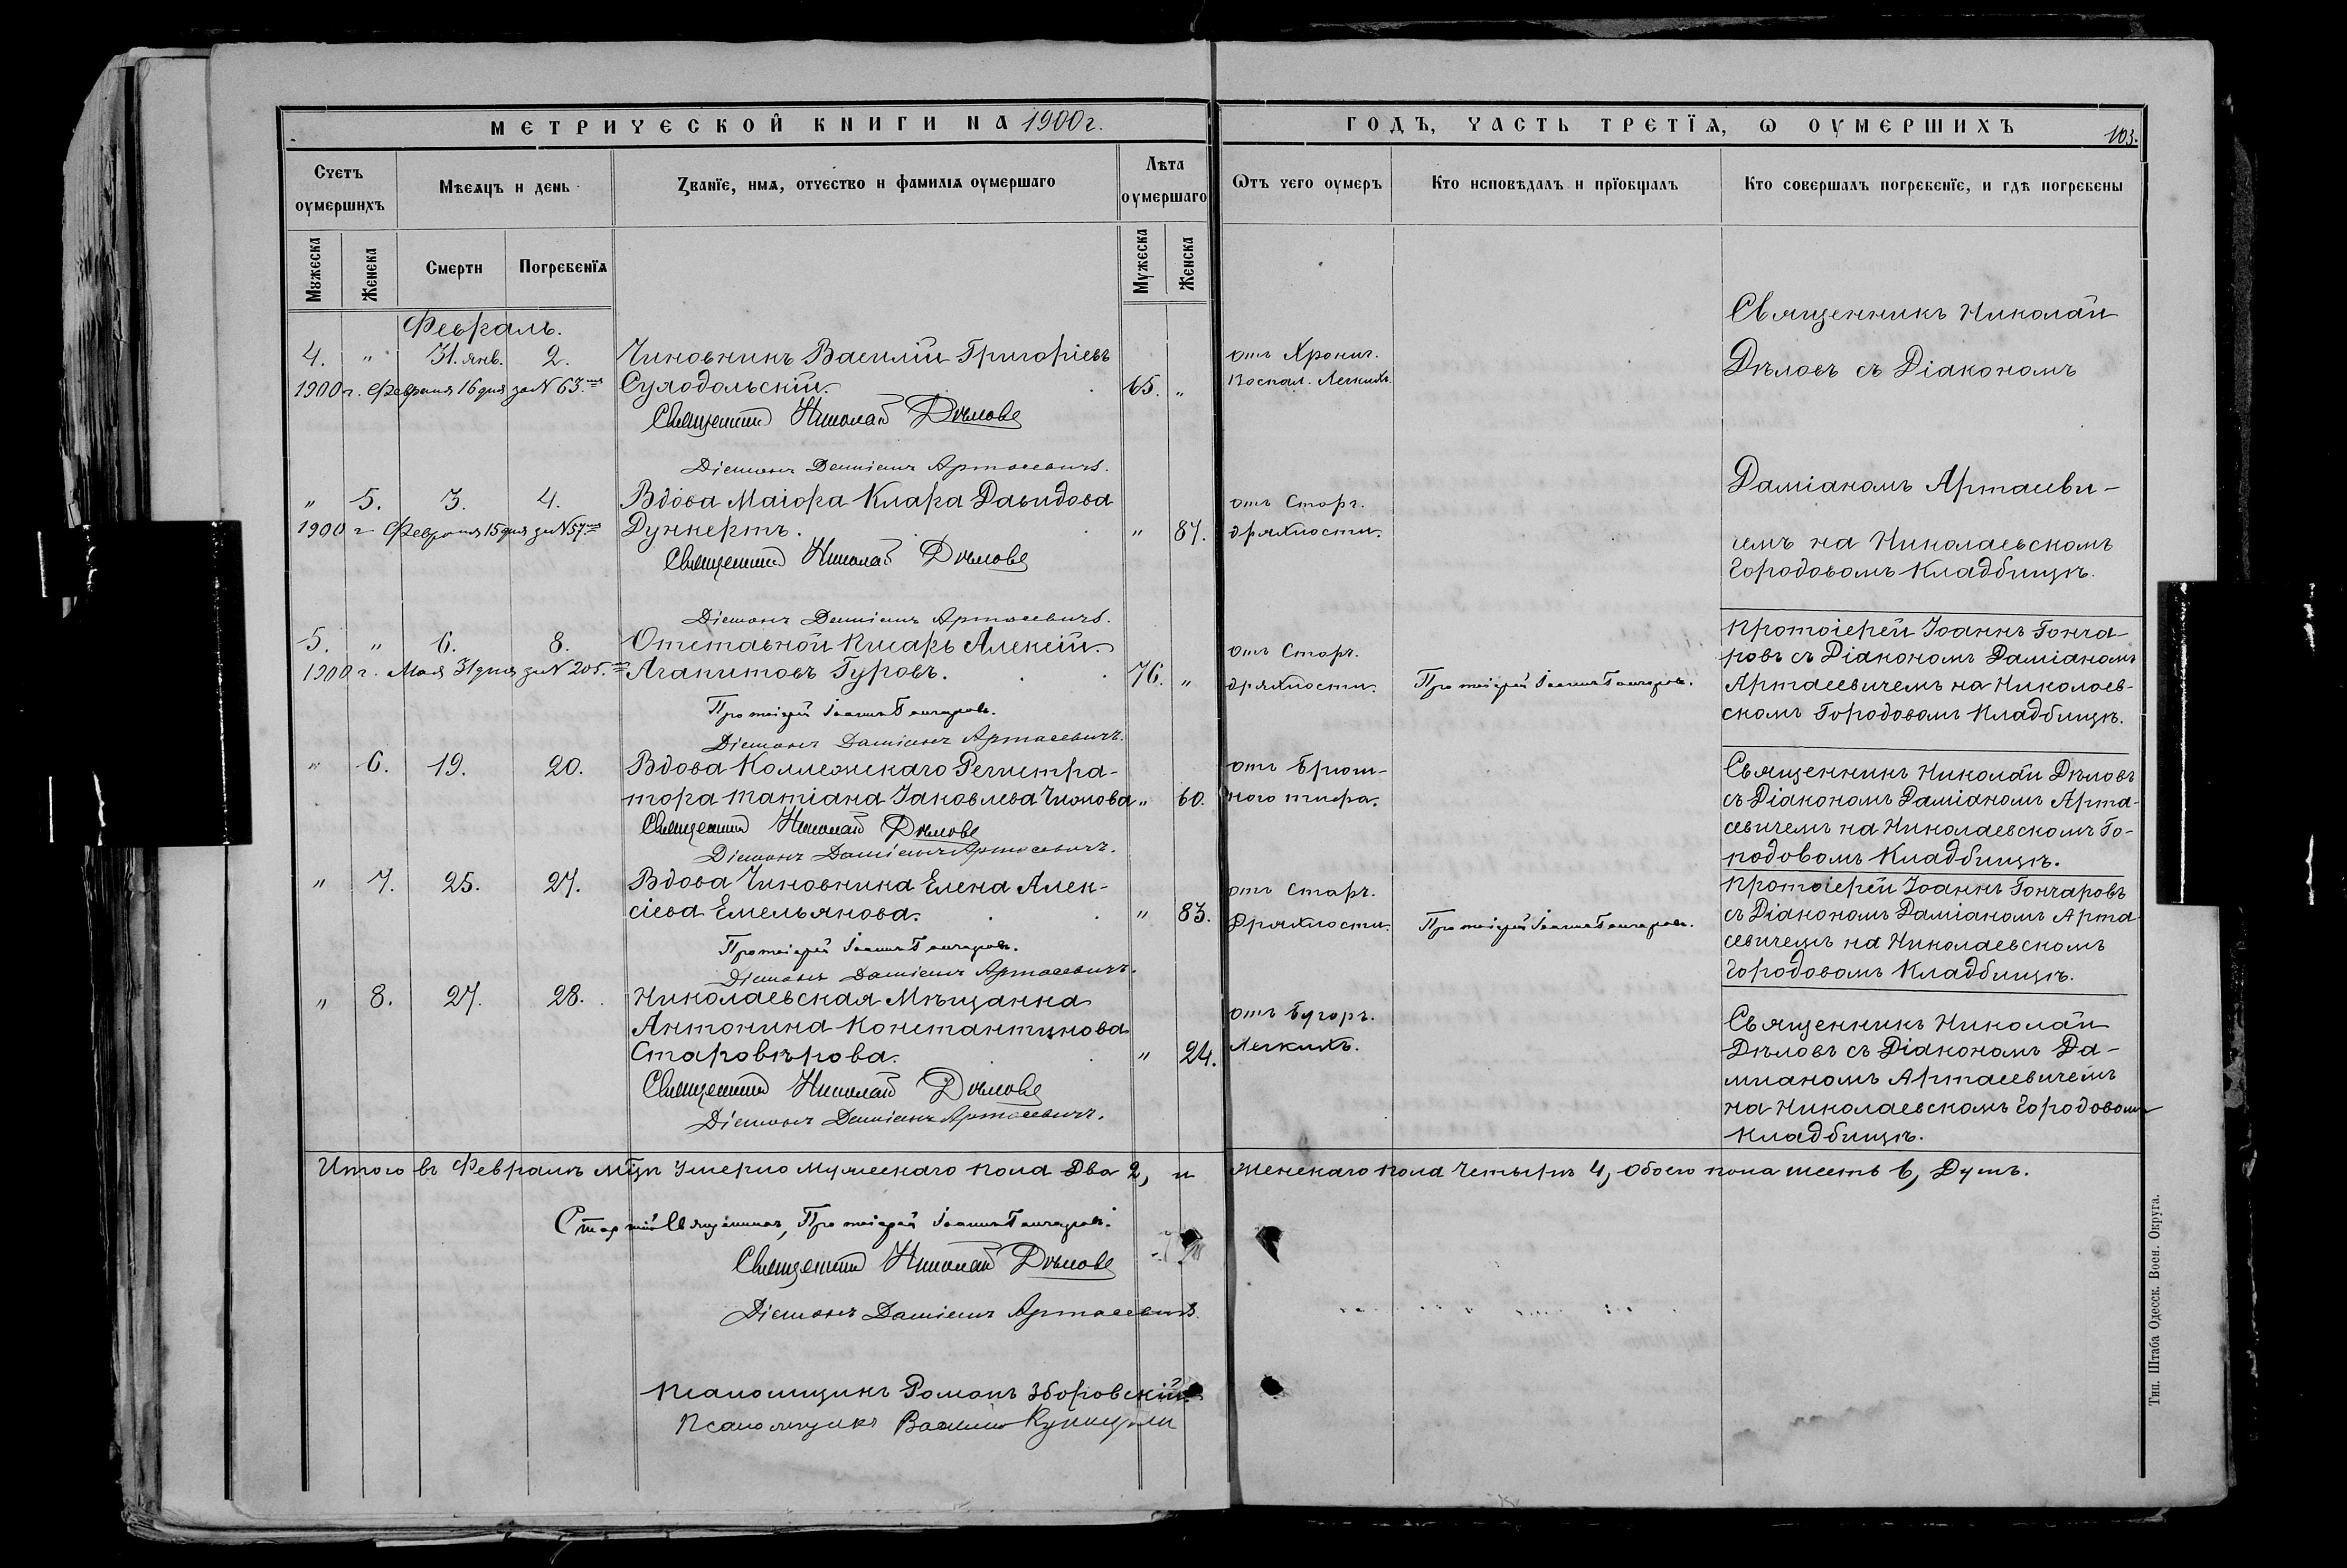 МЕТРИЧЕСКОЙ КНИГИ НА 1900 г.
ГОДЪ, ЧАСТЬ ТРЕТЇѦ, Ѡ ОУМЕРШИХЪ
103.
Счетъ оумершихъ
Мѣсяцъ и день
Званїе, имѧ, отчество и фамилїѧ оумершаго
Лѣта оумершаго
Ѿтъ чего оумеръ
Кто исповѣдалъ и прїобщалъ
Кто совершалъ погребенїе, и гдѣ погребены
Мужеска
Женска
Смерти
Погребенїѧ
Мужеска
Женска
Февраль.
4. " 31. янв. 2. Чиновникъ Василій Григоріевъ
1900 г. Февраля 16 дня за № 63.мъ Суходольскій. 65. "
Священникъ Николай Дѣловъ
Діаконъ Даміанъ Артасевичъ.
отъ Хронич.
Воспал. Легкихъ.
Священникъ Николай
Дѣловъ съ Діакономъ
" 5. 3. 4. Вдова Маіора Клара Давидова
1900 г. Февраля 15 дня за № 57.мъ Дуккертъ. " 87.
Священникъ Николай Дѣловъ
Діаконъ Даміанъ Артасевичъ.
отъ Старч.
дряхлости.
Даміаномъ Артасеви-
чемъ на Николаевскомъ
Городовомъ Кладбищѣ.
5. " 6. 8. Отставной Писарь Алексій
1900 г. Мая 31 дня за № 205.мъ Агапитовъ Гуровъ. 76. "
Протоіерей Іоаннъ Гончаровъ.
Діаконъ Даміанъ Артасевичъ.
отъ Старч.
дряхлости.
Протоіерей Іоаннъ Гончаровъ.
Протоіерей Іоаннъ Гонча-
ровъ съ Діакономъ Даміаномъ
Артасевичемъ на Николаев-
скомъ Городовомъ Кладбищѣ.
" 6. 19. 20. Вдова Коллежскаго Регистра-
тора Татіана Іаковлева " 60.
Священникъ Николай Дѣловъ
Діаконъ Даміанъ Артасевичъ.
отъ Брюш-
ного тифа.
Священникъ Николай Дѣловъ
съ Діакономъ Даміаномъ Арта-
севичемъ на Николаевскомъ Го-
родовомъ Кладбищѣ.
" 7. 25. 27. Вдова Чиновника Елена Алек-
сіева Емельянова. " 83.
Протоіерей Іоаннъ Гончаровъ.
Діаконъ Даміанъ Артасевичъ.
отъ Старч.
Дряхлости.
Протоіерей Іоаннъ Гончаровъ.
Протоіерей Іоаннъ Гончаровъ
съ Діакономъ Даміаномъ Арта-
севичемъ на Николаевскомъ
Городовомъ Кладбищѣ.
" 8. 27. 28. Николаевская Мѣщанка
Антонина Константинова
Старовѣрова. " 24.
Священникъ Николай Дѣловъ
Діаконъ Даміанъ Артасевичъ.
отъ Бугорч.
Легкихъ.
Священникъ Николай
Дѣловъ съ Діакономъ Да-
міаномъ Артасевичемъ
на Николаевскомъ Городовомъ
Кладбищѣ.
Итого въ Февралѣ мцѣ Умерло Мужескаго пола Два 2, и Женскаго пола Четыре 4, Обоего пола шесть 6, Душъ.
Старшій Священникъ, Протоіерей Іоаннъ Гончаровъ.
Священникъ Николай Дѣловъ
Діаконъ Даміанъ Артасевичъ.
Псаломщикъ Романъ Зборовскій
Псаломщикъ Василій
Тип. Штаба Одесск. Воен. Округа.